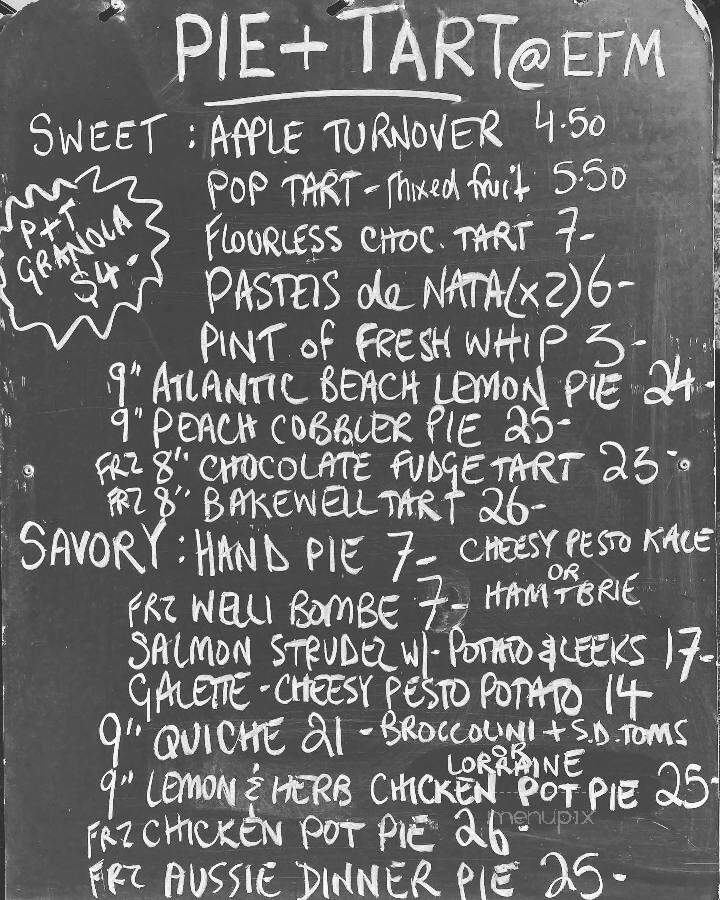 PIE + TART @ EFM
SWEET : APPLE TURNOVER 4.50
POP TART - Mixed fruit 5.50
P+T
GRANOLA
$4-
FLOURLESS CHOC. TART 7-
PASTEIS de NATA (x2) 6-
PINT of FRESH WHIP 3-
9" ATLANTIC BEACH LEMON PIE 24-
9" PEACH COBBLER PIE 25-
FRZ 8" CHOCOLATE FUDGE TART 23-
FRZ 8" BAKEWELL TART 26-
SAVORY : HAND PIE 7- CHEESY PESTO KALE
OR
HAM + BRIE
FRZ WELLI BOMBE 7-
SALMON STRUDEL W/- POTATO & LEEKS 17-
GALETTE - CHEESY PESTO POTATO 14
9" QUICHE 21 - BROCCOLINI + S.D. TOMS
OR
LORRAINE
9" LEMON & HERB CHICKEN POT PIE 25-
menupix
FRZ CHICKEN POT PIE 26-
FRZ AUSSIE DINNER PIE 25-